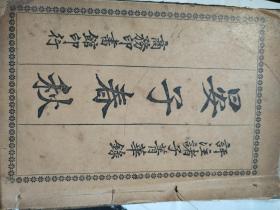 評註諸子菁華錄
晏子春秋
商務印書館印行